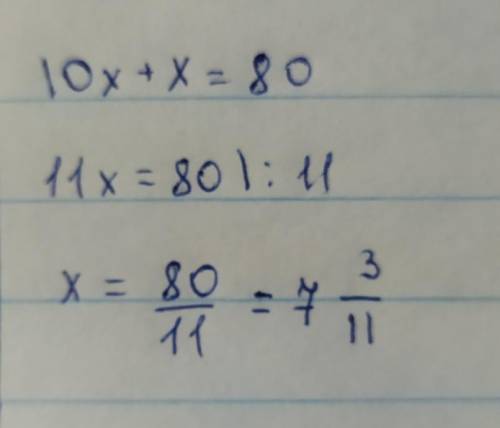 10x + x = 80
11x = 80 \ : 11
x = 80/11 = 7 3/11